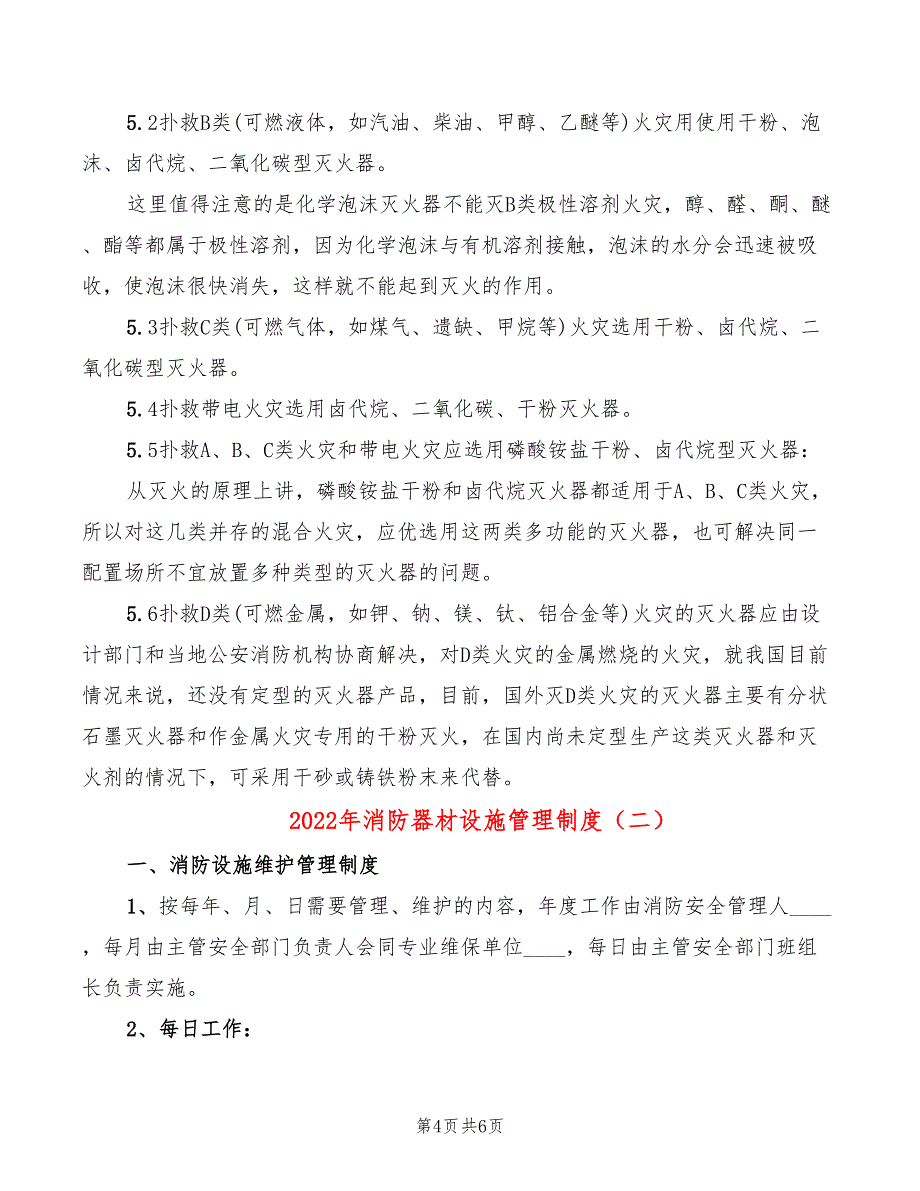 5.2扑救B类(可燃液体，如汽油、柴油、甲醇、乙醚等)火灾用使用干粉、泡
沫、卤代烷、二氧化碳型灭火器。
这里值得注意的是化学泡沫灭火器不能灭B类极性溶剂火灾，醇、醛、酮、醚
、酯等都属于极性溶剂，因为化学泡沫与有机溶剂接触，泡沫的水分会迅速被吸
收，使泡沫很快消失，这样就不能起到灭火的作用。
5.3扑救C类(可燃气体，如煤气、遗缺、甲烷等)火灾选用干粉、卤代烷、二
氧化碳型灭火器。
5.4扑救带电火灾选用卤代烷、二氧化碳、干粉灭火器。
5.5扑救A、B、C类火灾和带电火灾应选用磷酸铵盐干粉、卤代烷型灭火器：
从灭火的原理上讲，磷酸铵盐干粉和卤代烷灭火器都适用于A、B、C类火灾，
所以对这几类并存的混合火灾，应优选用这两类多功能的灭火器，也可解决同一
配置场所不宜放置多种类型的灭火器的问题。
5.6扑救D类(可燃金属，如钾、钠、镁、钛、铝合金等)火灾的灭火器应由设
计部门和当地公安消防机构协商解决，对D类火灾的金属燃烧的火灾，就我国目前
情况来说，还没有定型的灭火器产品，目前，国外灭D类火灾的灭火器主要有分状
石墨灭火器和作金属火灾专用的干粉灭火，在国内尚未定型生产这类灭火器和灭
火剂的情况下，可采用干砂或铸铁粉末来代替。
2022年消防器材设施管理制度（二）
一、消防设施维护管理制度
1、按每年、月、日需要管理、维护的内容，年度工作由消防安全管理人____
，每月由主管安全部门负责人会同专业维保单位____，每日由主管安全部门班组
长负责实施。
2、每日工作：
第4页共6页